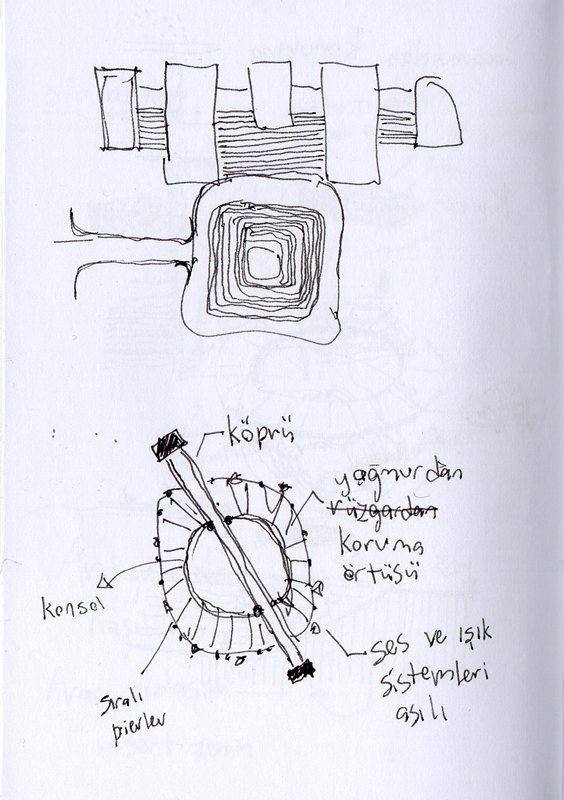 köprü
yağmurdan
rüzgardan
koruma
örtüsü
konsol
ses ve ışık
sistemleri
asılı
sıralı
pierler